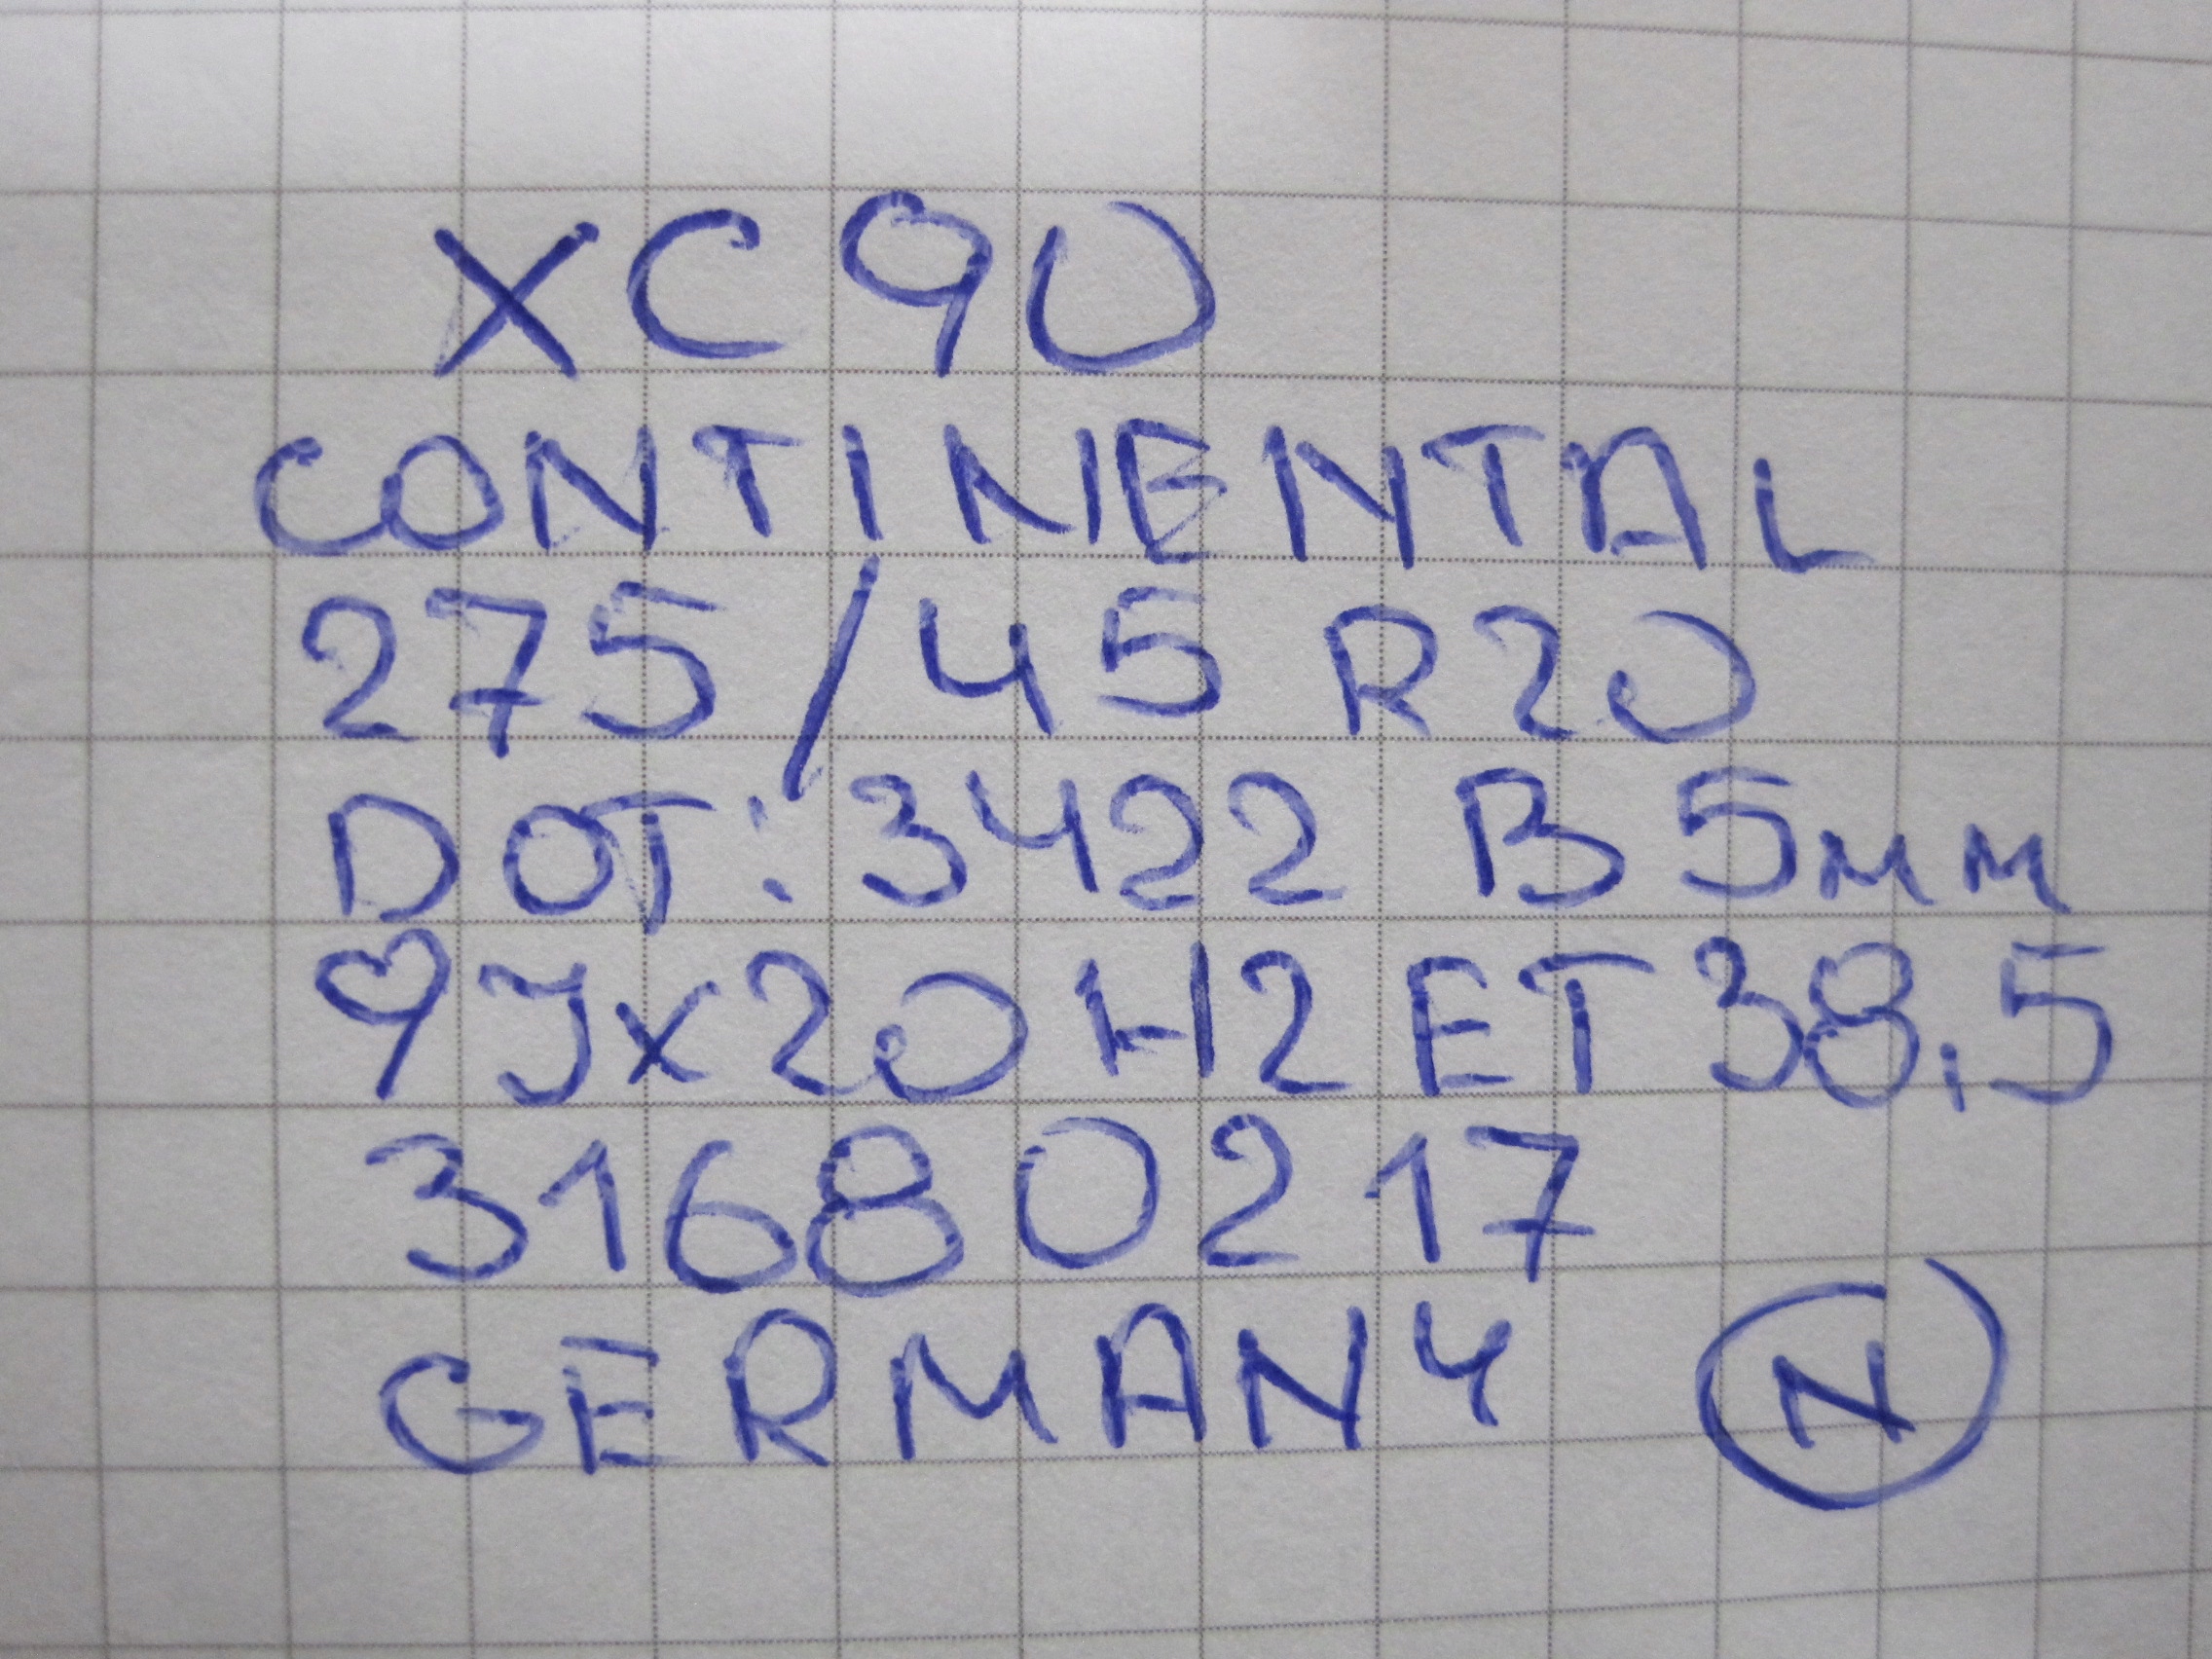 XC90
CONTINENTAL
275/45 R20
DOT: 3422 B 5mm
9Jx20 H2 ET 38,5
31680217
GERMANY N